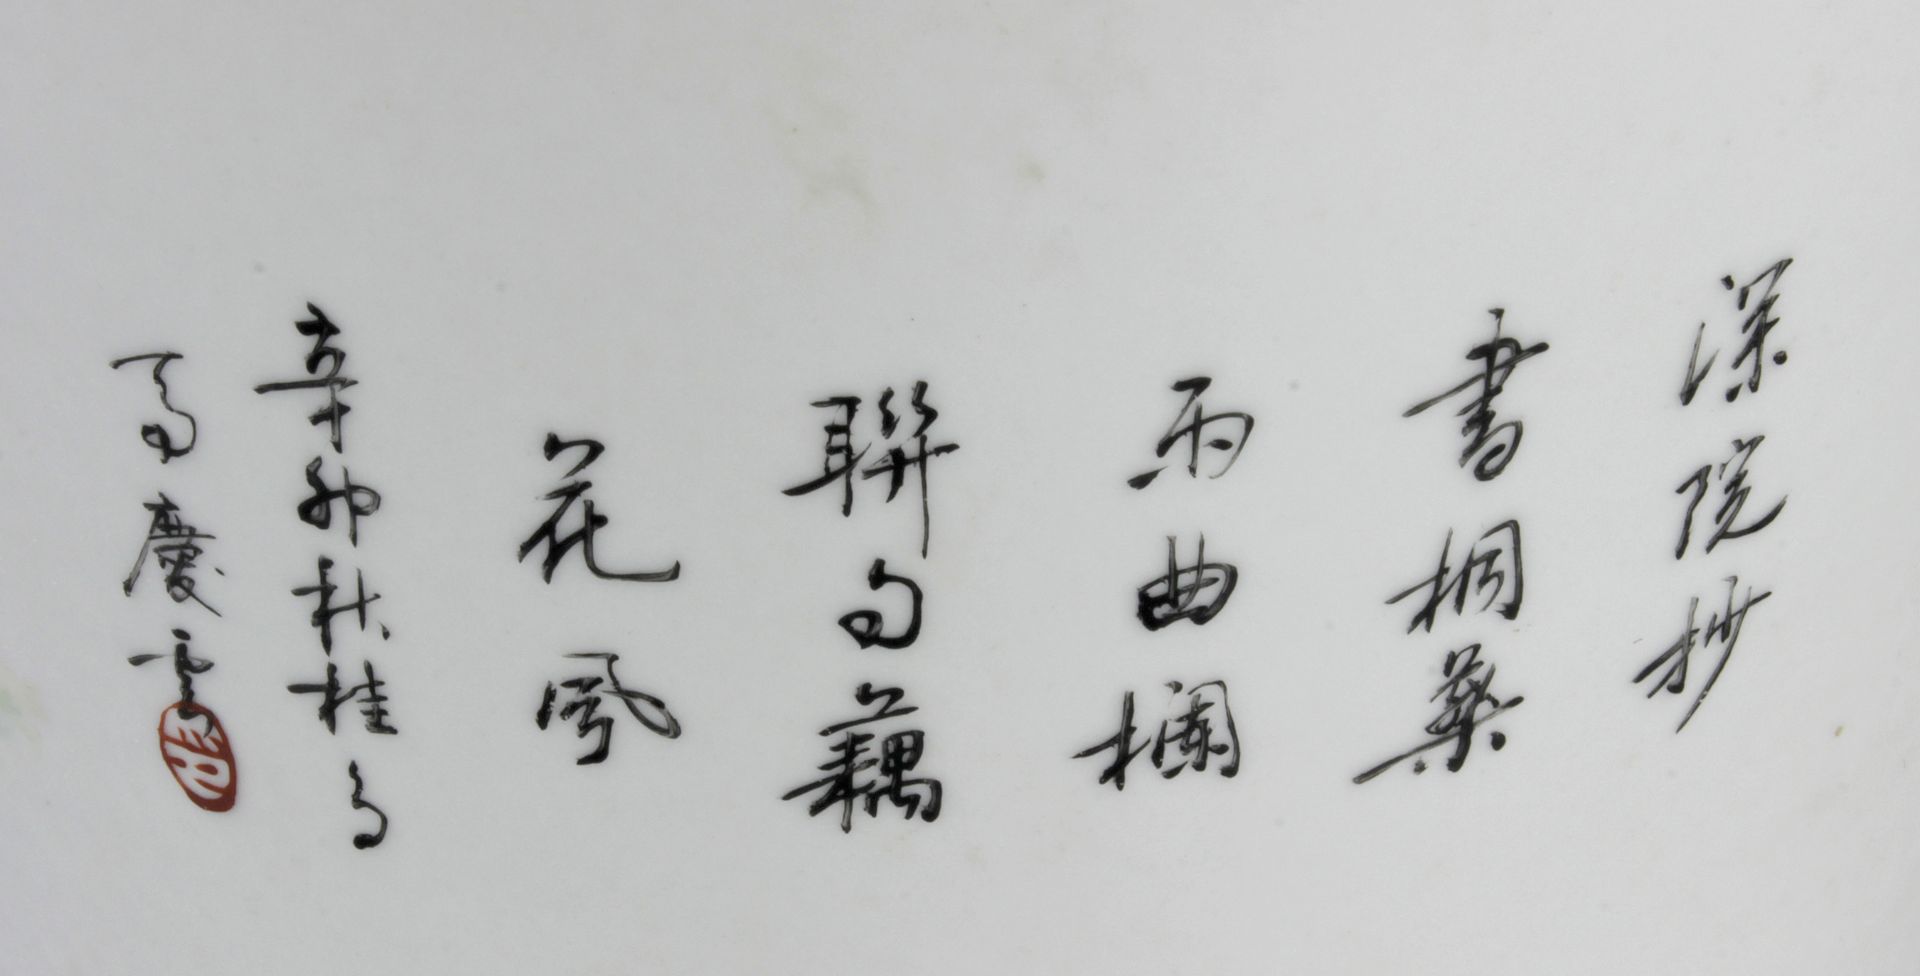 深院抄
書桐葉
雨曲欄
聯句藕
花風
辛卯秋桂月
慶雲